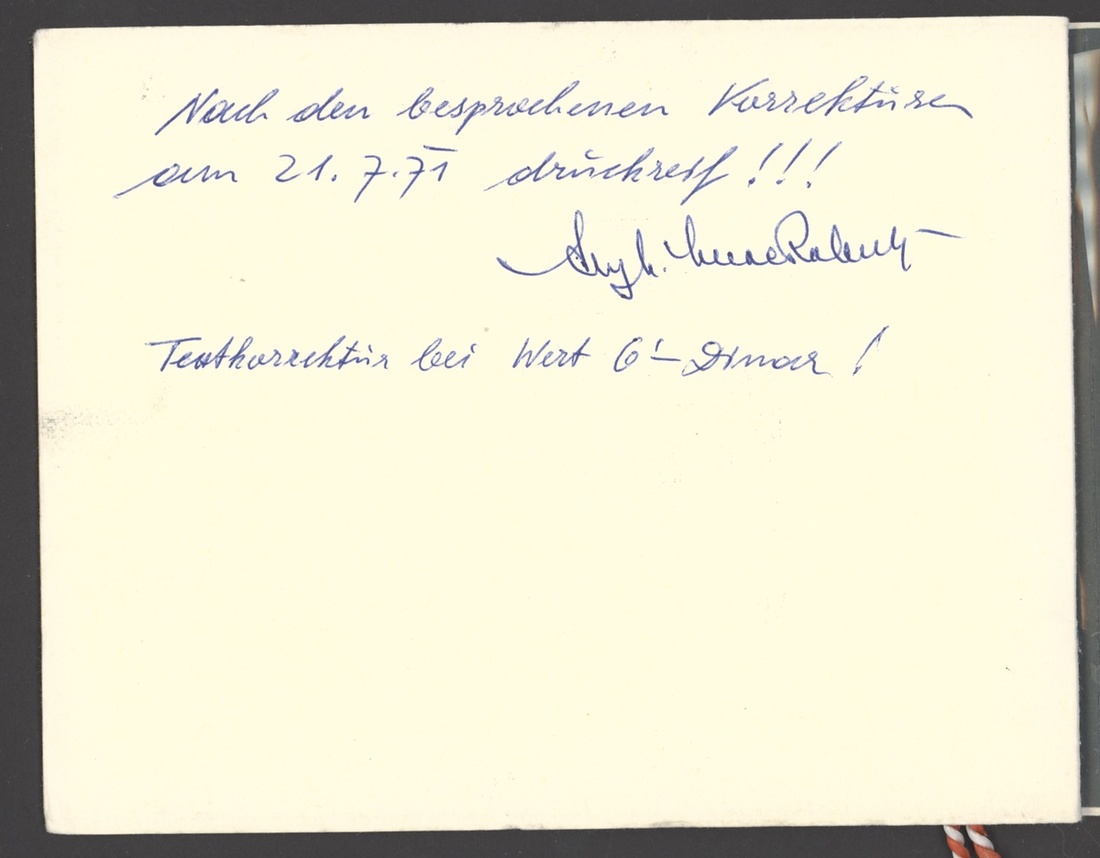 Nach den besprochenen Korrekturen
am 21. 7. 71 druckreif !!!
Textkorrektur bei Wert 6'- Dinar !